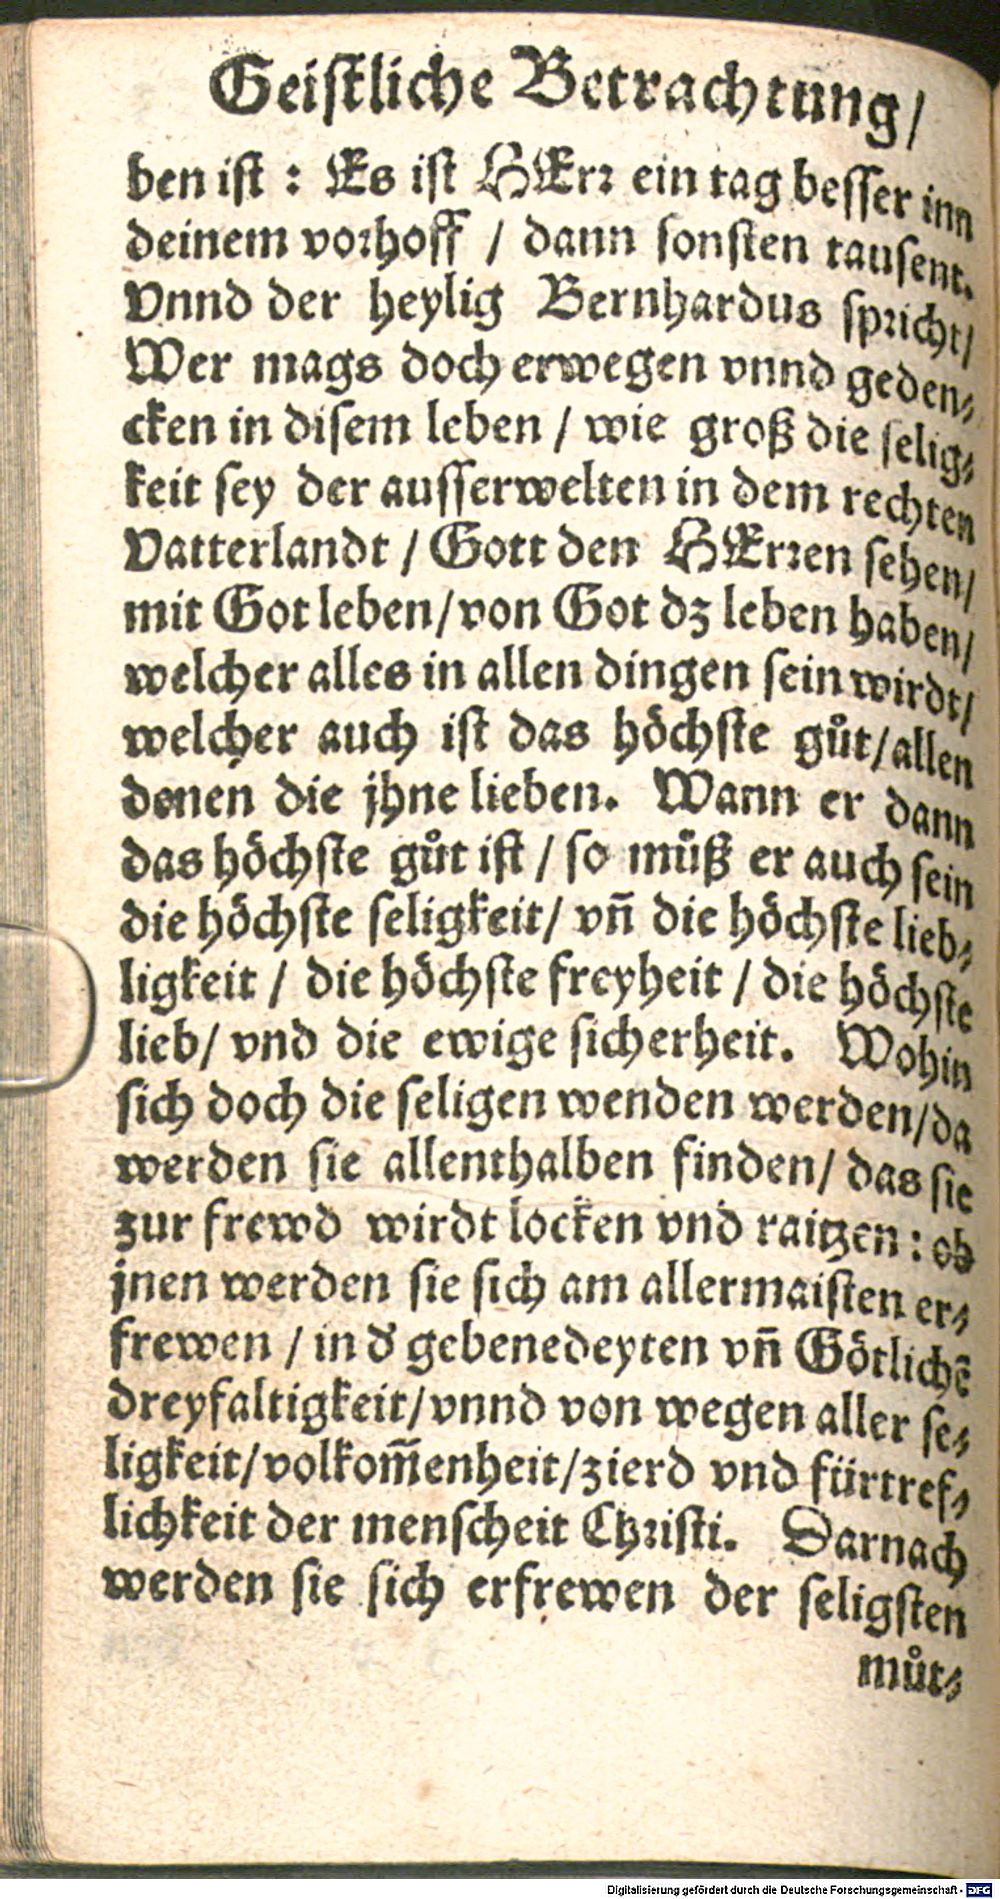 Geistliche Betrachtung/
ben ist : Es ist HErr ein tag besser inn
deinem vorhoff / dann sonsten tausent.
Vnnd der heylig Bernhardus spricht/
Wer mags doch erwegen vnnd geden⸗
cken in disem leben / wie groß die selig⸗
keit sey der ausserwelten in dem rechten
Vatterlandt / Gott den HErren sehen/
mit Got leben/von Got dz leben haben/
welcher alles in allen dingen sein wirdt/
welcher auch ist das höchste gůt/allen
denen die jhne lieben. Wann er dann
das höchste gůt ist / so můß er auch sein
die höchste seligkeit/ vñ die höchste lieb⸗
ligkeit / die höchste freyheit / die höchste
lieb/ vnd die ewige sicherheit. Wohin
sich doch die seligen wenden werden/da
werden sie allenthalben finden/ das sie
zur frewd wirdt locken vnd raitzen : ob
jnen werden sie sich am allermaisten er⸗
frewen / in d̕ gebenedeyten vñ Götlichẽ
dreyfaltigkeit/vnnd von wegen aller se⸗
ligkeit/volkom̃enheit/zierd vnd fürtref⸗
lichkeit der menscheit Christi. Darnach
werden sie sich erfrewen der seligsten
můt⸗
Digitalisierung gefördert durch die Deutsche Forschungsgemeinschaft - DFG